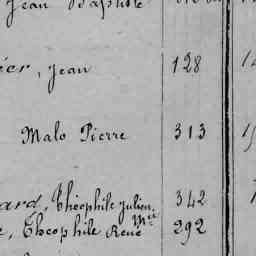 Jean Baptiste
Jean 128
Malo Pierre 313
ard, Théophile Julien, 342
e, Théophile René Mie 292